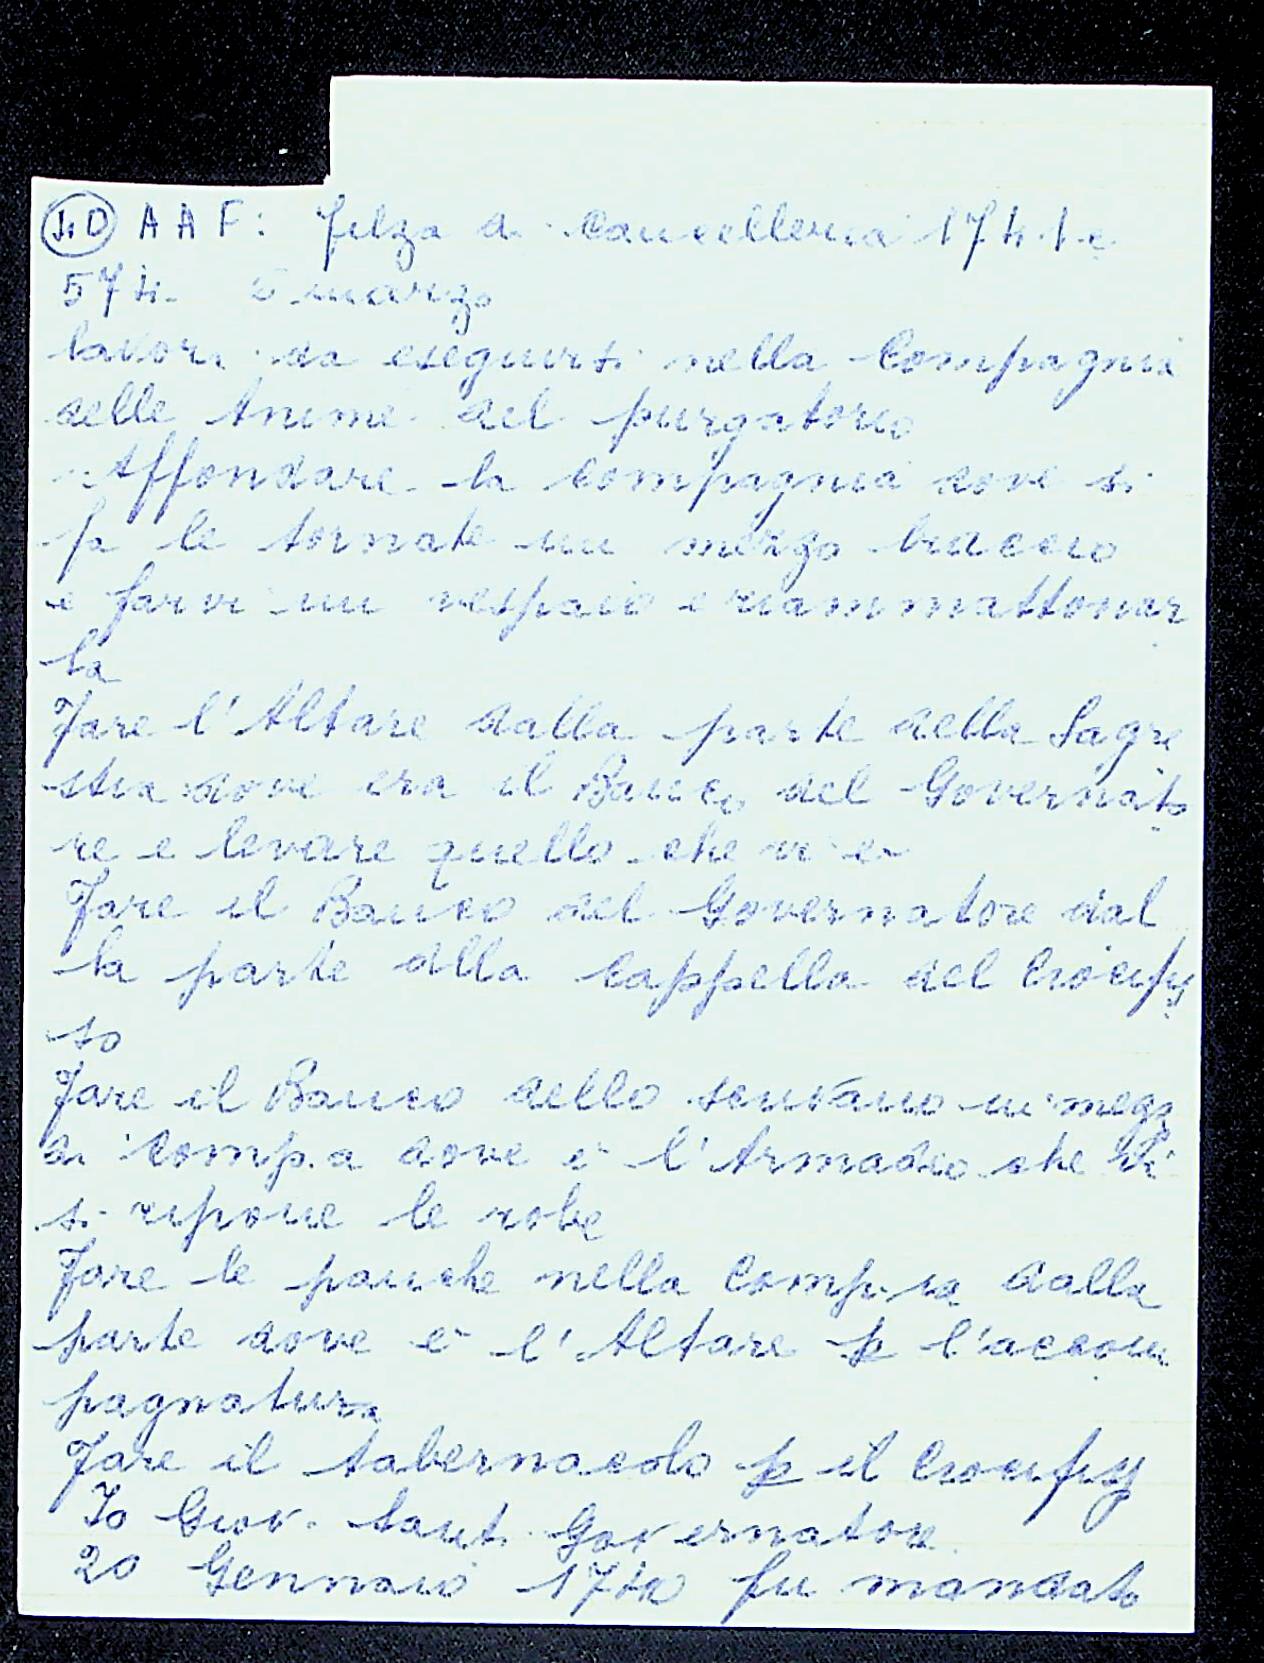 AAF: filza di Cancelleria 1741 c
574. 5 marzo
lavori da eseguirsi nella Compagnia
delle Anime del purgatorio
Affondare la compagnia dove si
fa le tornate un mezzo braccio
e farvi un vespaio e riammattonar
la
Fare l'Altare dalla parte della Sagre
stia dove era il Banco del Governato
re e levare quello che vi è
Fare il Banco del Governatore dal
la parte della cappella del Crocifis
so
Fare il Banco dello scrivano in mezzo
di Comp.a dove è l'Armadio che vi
si ripone le robe
Fare le panche nella Comp.ia dalla
parte dove è l'Altare p l'accom
pagnatura
Fare il tabernacolo p il Crocifis
Io Giov. Santi Governatore
20 Gennaio 1740 fu mandato